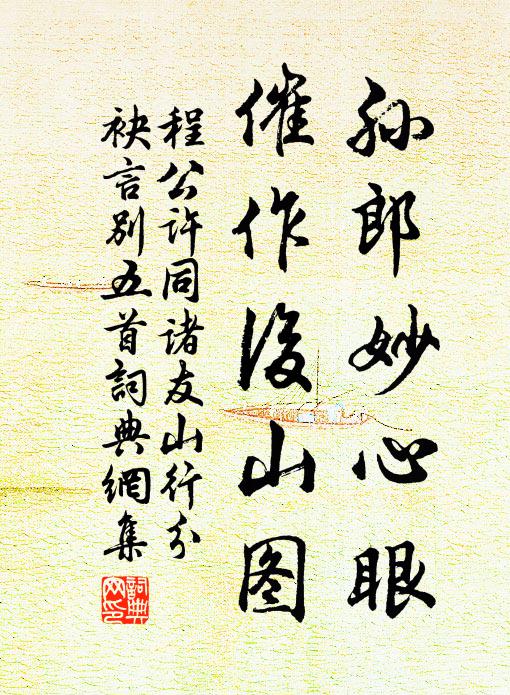 孙郎妙心眼
催作后山图
程公许同诸友山行分
袂言别五首詞典網集
詞典